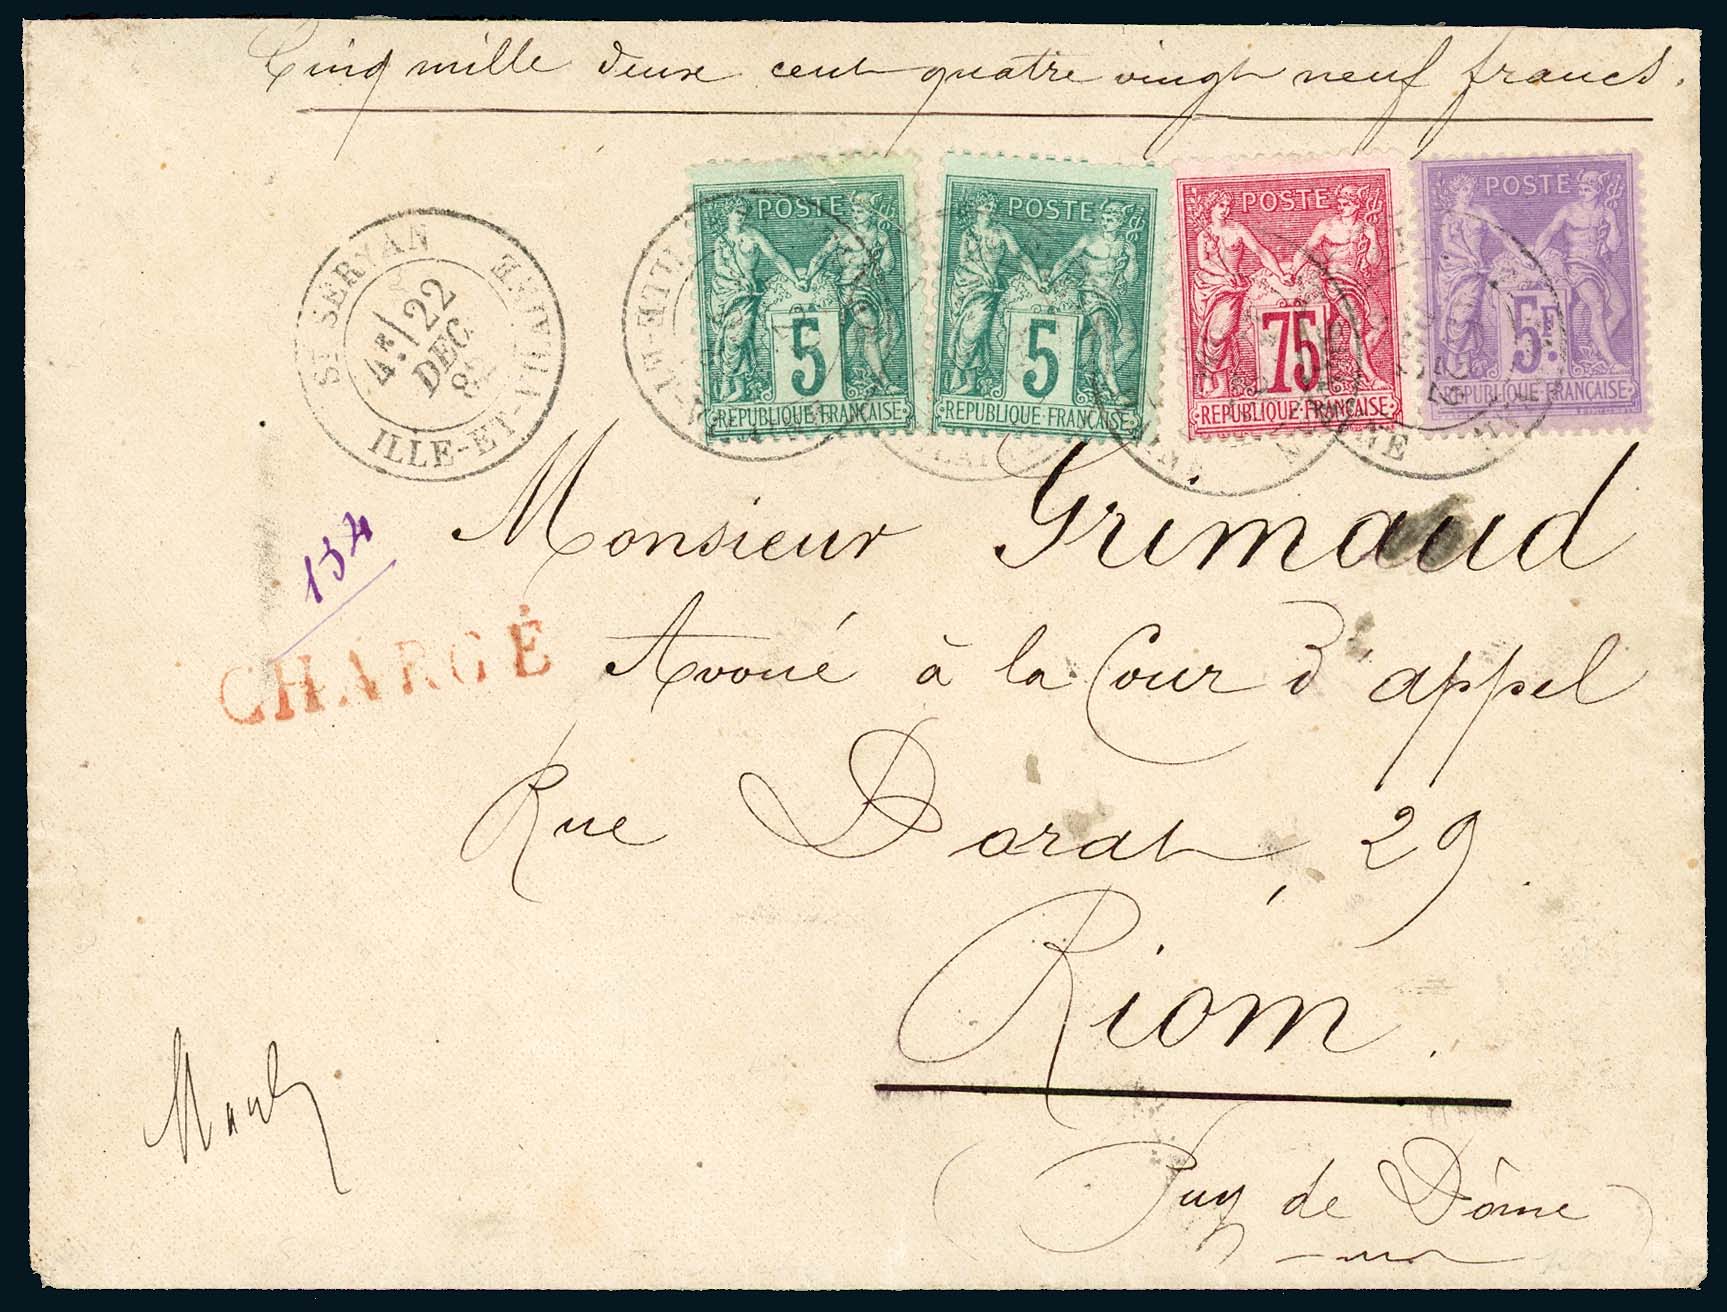 Cinq mille deux cent quatre vingt neuf francs.
POSTE
5
REPUBLIQUE FRANCAISE
POSTE
5
REPUBLIQUE FRANCAISE
POSTE
75
REPUBLIQUE FRANCAISE
POSTE
5F.
REPUBLIQUE FRANCAISE
ST SERVAN
4E 22
DEC
ILLE-ET-VILAINE
134
CHARGÉ
Monsieur Grimaud
Avoué à la Cour d'appel
Rue Dorat, 29
Riom.
(Puy de Dôme)